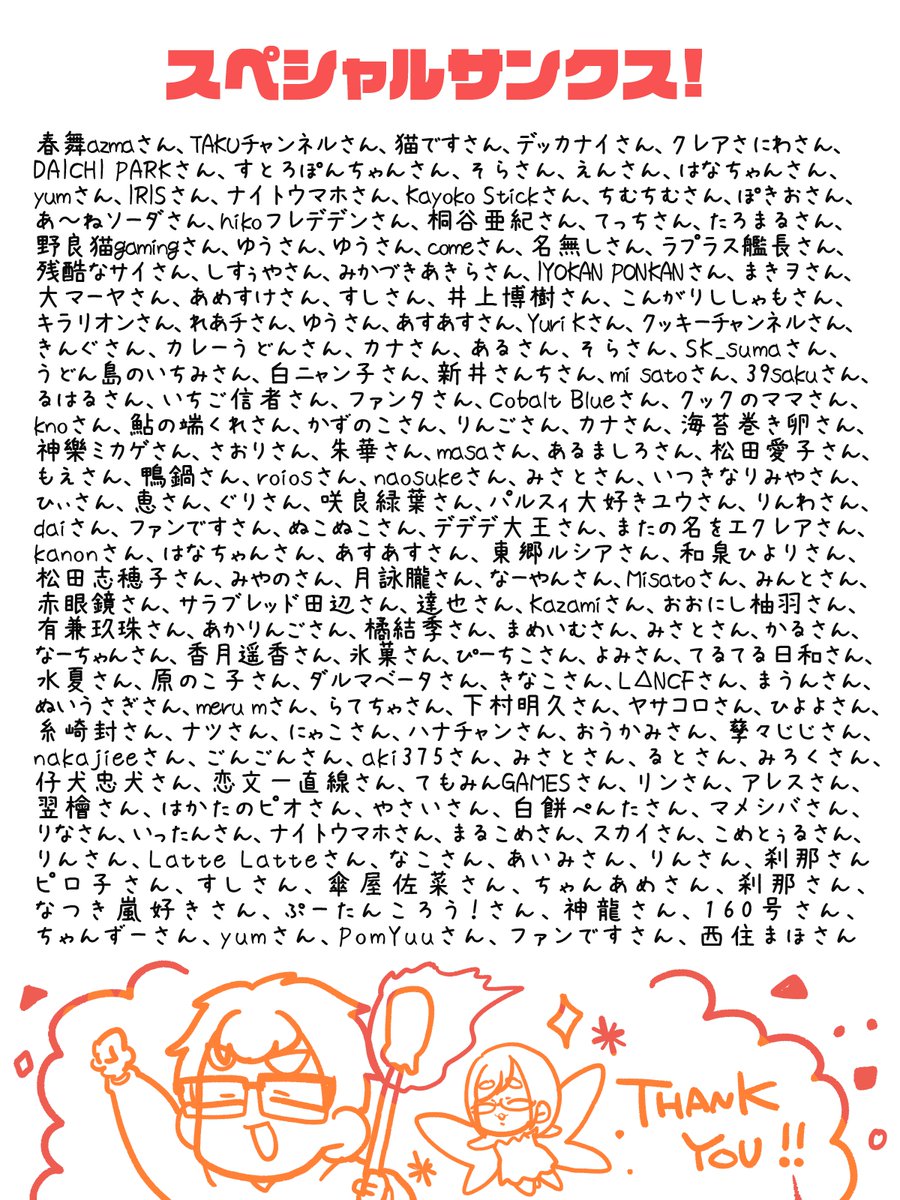 スペシャルサンクス!
春舞azmaさん、TAKUチャンネルさん、猫ですさん、デッカナイさん、クレアさにわさん、
DAICHI PARKさん、すとろぽんちゃんさん、そらさん、えんさん、はなちゃんさん、
yumさん、IRISさん、ナイトウマホさん、Kayoko Stickさん、ちむちむさん、ぽきおさん、
あ〜ねソーダさん、hikoフレデデンさん、桐谷亜紀さん、てっちさん、たろまるさん、
野良猫gamingさん、ゆうさん、ゆうさん、comeさん、名無しさん、ラプラス艦長さん、
残酷なサイさん、しすぅやさん、みかづきあきらさん、IYOKAN PONKANさん、まきヲさん、
大マーヤさん、あめすけさん、すしさん、井上博樹さん、こんがりししゃもさん、
キラリオンさん、れあチさん、ゆうさん、あすあすさん、Yuri Kさん、クッキーチャンネルさん、
きんぐさん、カレーうどんさん、カナさん、あるさん、そらさん、SK_sumaさん、
うどん島のいちみさん、白ニャン子さん、新井さんちさん、mi satoさん、39sakuさん、
るはるさん、いちご信者さん、ファンタさん、Cobalt Blueさん、クックのママさん、
knoさん、鮎の端くれさん、かずのこさん、りんごさん、カナさん、海苔巻き卵さん、
神樂ミカゲさん、さおりさん、朱華さん、masaさん、あるましろさん、松田愛子さん、
もえさん、鴨鍋さん、roiosさん、naosukeさん、みさとさん、いつきなりみやさん、
ひぃさん、恵さん、ぐりさん、咲良緑葉さん、パルスィ大好きユウさん、りんわさん、
daiさん、ファンですさん、ぬこぬこさん、デデデ大王さん、またの名をエクレアさん、
kanonさん、はなちゃんさん、あすあすさん、東郷ルシアさん、和泉ひよりさん、
松田志穂子さん、みやのさん、月詠朧さん、なーやんさん、Misatoさん、みんとさん、
赤眼鏡さん、サラブレッド田辺さん、達也さん、Kazamiさん、おおにし柚羽さん、
有兼玖珠さん、あかりんごさん、橘結季さん、まめいむさん、みさとさん、かるさん、
なーちゃんさん、香月遥香さん、氷菓さん、ぴーちこさん、よみさん、てるてる日和さん、
水夏さん、原のこ子さん、ダルマベータさん、きなこさん、L△NCFさん、まうんさん、
ぬいうさぎさん、meru mさん、らてちゃさん、下村明久さん、ヤサコロさん、ひよよさん、
糸崎封さん、ナツさん、にゃこさん、ハナチャンさん、おうかみさん、孳々じじさん、
nakajieeさん、ごんごんさん、aki375さん、みさとさん、るとさん、みろくさん、
仔犬忠犬さん、恋文一直線さん、てもみんGAMESさん、リンさん、アレスさん、
翌檜さん、はかたのピオさん、やさいさん、白餅ぺんたさん、マメシバさん、
りなさん、いったんさん、ナイトウマホさん、まるこめさん、スカイさん、こめとぅるさん、
りんさん、Latte Latteさん、なこさん、あいみさん、りんさん、刹那さん
ピロ子さん、すしさん、傘屋佐菜さん、ちゃんあめさん、刹那さん、
なつき嵐好きさん、ぷーたんころう!さん、神龍さん、160号さん、
ちゃんずーさん、yumさん、PomYuuさん、ファンですさん、西住まほさん
THANK
YOU!!